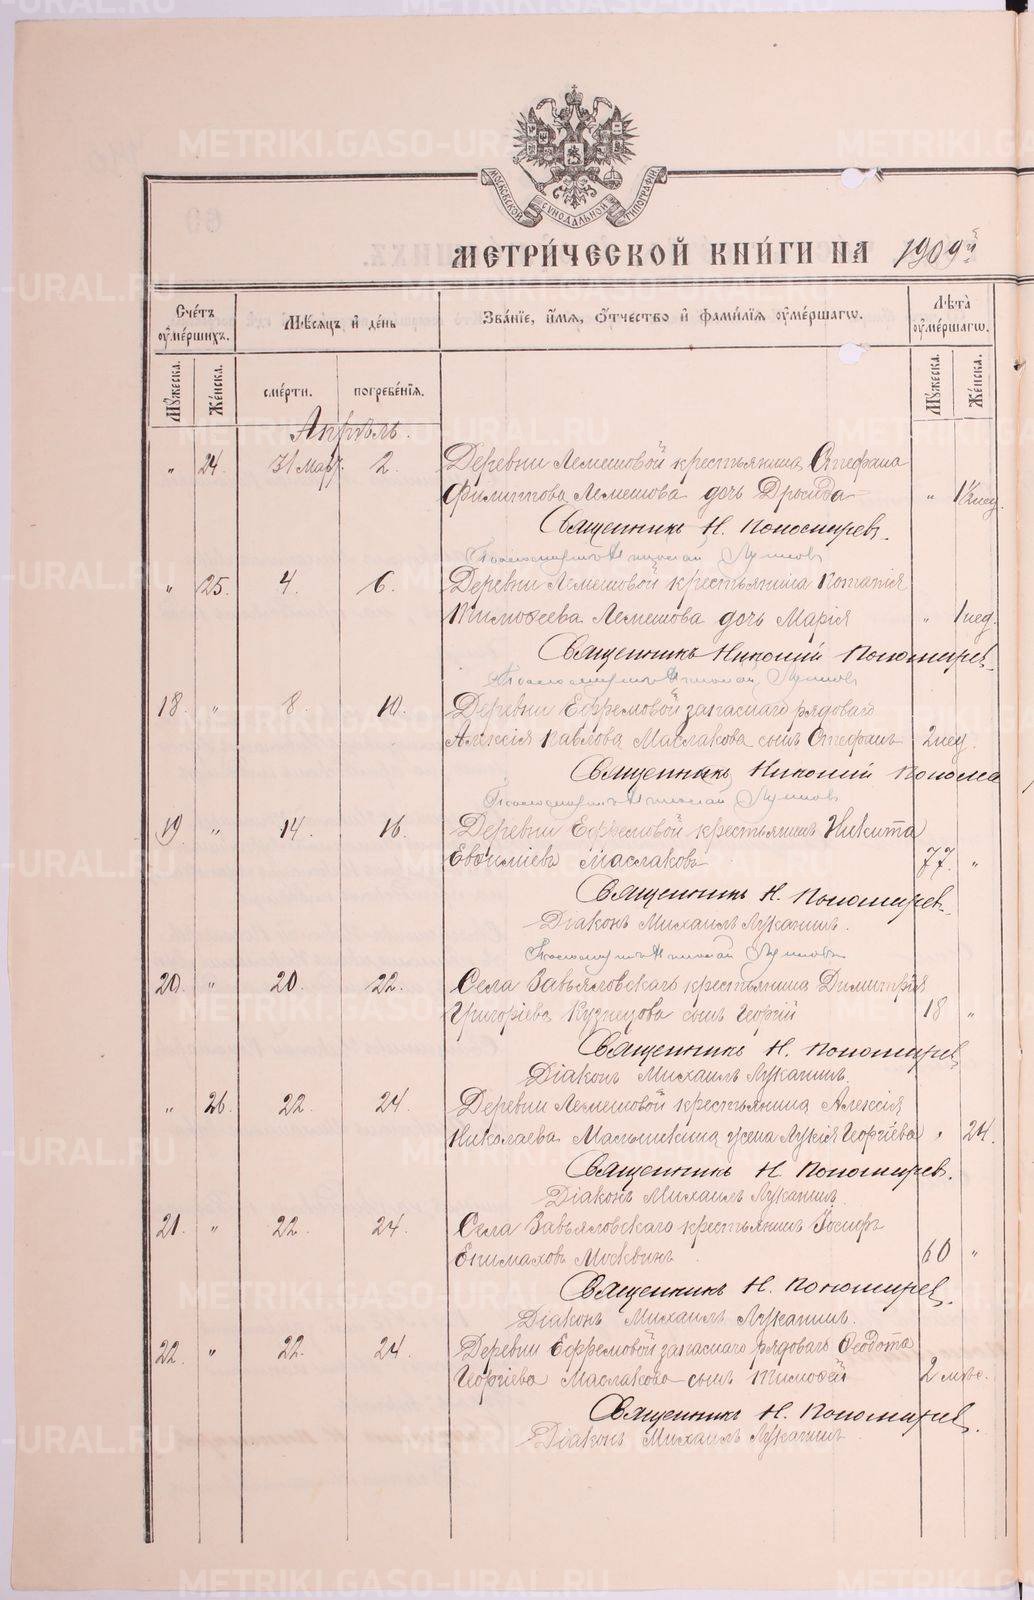 МОСКОВСКОЙ СѴНОДАЛЬНОЙ ТИПОГРАФІИ
МЕТРИ́ЧЕСКОЙ КНИ́ГИ НА 1909й
Сче́тъ ᲂу҆ме́ршихъ.
Мѣ́сяцъ и҆ де́нь
Зва́нїе, и҆́мѧ, ѻ҆́тчество и҆ фами́лїѧ ᲂу҆ме́ршагѡ.
Лѣ́та ᲂу҆ме́ршагѡ.
Мꙋ́жеска.
Же́нска.
сме́рти.
погребе́нїѧ.
Мꙋ́жеска.
Же́нска.
Апрѣль.
„ 24. 31 Март. 2. Деревни Лемешовой крестьянина Стефана
Филиппова Лемешова дочь „ 1½нед.
Священникъ Н. Пономарев.
Псаломщикъ Николай
„ 25. 4. 6. Деревни Лемешовой крестьянина Потапія
Тимоѳеева Лемешова дочь Марія „ 1нед.
Священникъ Николай Пономарев
Псаломщикъ Николай
18. „ 8. 10. Деревни Ефремовой запаснаго рядоваго
Алексія Павлова Маслакова сынъ Стефанъ 2нед.
Священникъ Николай Понома
Псаломщикъ Николай
19 „ 14. 16. Деревни Ефремовой крестьянинъ Никита
Маслаковъ 77. „
Священникъ Н. Пономарев.
Діаконъ Михаилъ Лукашинъ.
Псаломщикъ Николай
20. „ 20. 22. Села Завьяловскаго крестьянина Димитрія
Григоріева Кузнецова сынъ Георгій 18 „
Священникъ Н. Пономарев
Діаконъ Михаилъ Лукашинъ.
„ 26. 22. 24. Деревни Лемешовой крестьянина Алексія
Николаева Малышкина жена Лукія Георгіева „ 24.
Священникъ Н. Пономарев.
Діаконъ Михаилъ Лукашинъ.
21. „ 22. 24. Села Завьяловскаго крестьянинъ Іосифъ
Епимаховъ Москвинъ 60 „
Священникъ Н. Пономарев.
Діаконъ Михаилъ Лукашинъ.
22. „ 22. 24. Деревни Ефремовой запаснаго рядоваго Ѳеодота
Георгіева Маслакова сынъ Тимоѳей 2 мѣс.
Священникъ Н. Пономарев.
Діаконъ Михаилъ Лукашинъ
METRIKI.GASO-URAL.RU